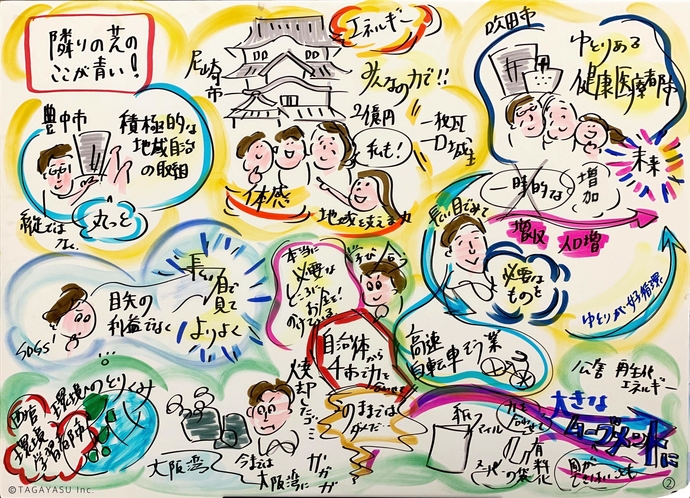 隣りの芝の
ここが青い!
尼崎市
エネルギー
みんなの力で!!
2億円
私も!
一枚瓦
口城主
一体感
地域を支える力
吹田市
ゆとりある
健康医療都市
未来
一時的な
増加
増収
人口増
長い目でみて
必要な
ものを
ゆとりが好循環
豊中市
積極的な
地域自治
の取組
縦では
なく、
丸っと
SDGs!
目先の
利益でなく
長い
目で
見て
よりよく
本当に
必要な
ところに
お金を!
学び合
自治体から
高速
自転車
西宮
環境
学習都市
環境へのとりくみ
大阪湾
焼却したゴミ…
今までは
大阪湾に
このままでは
ダメだ…
紙ファイル
スーパーの袋
有料化
公害
再生化
エネルギー
大きな
ムーブメントに
②
©TAGAYASU Inc.